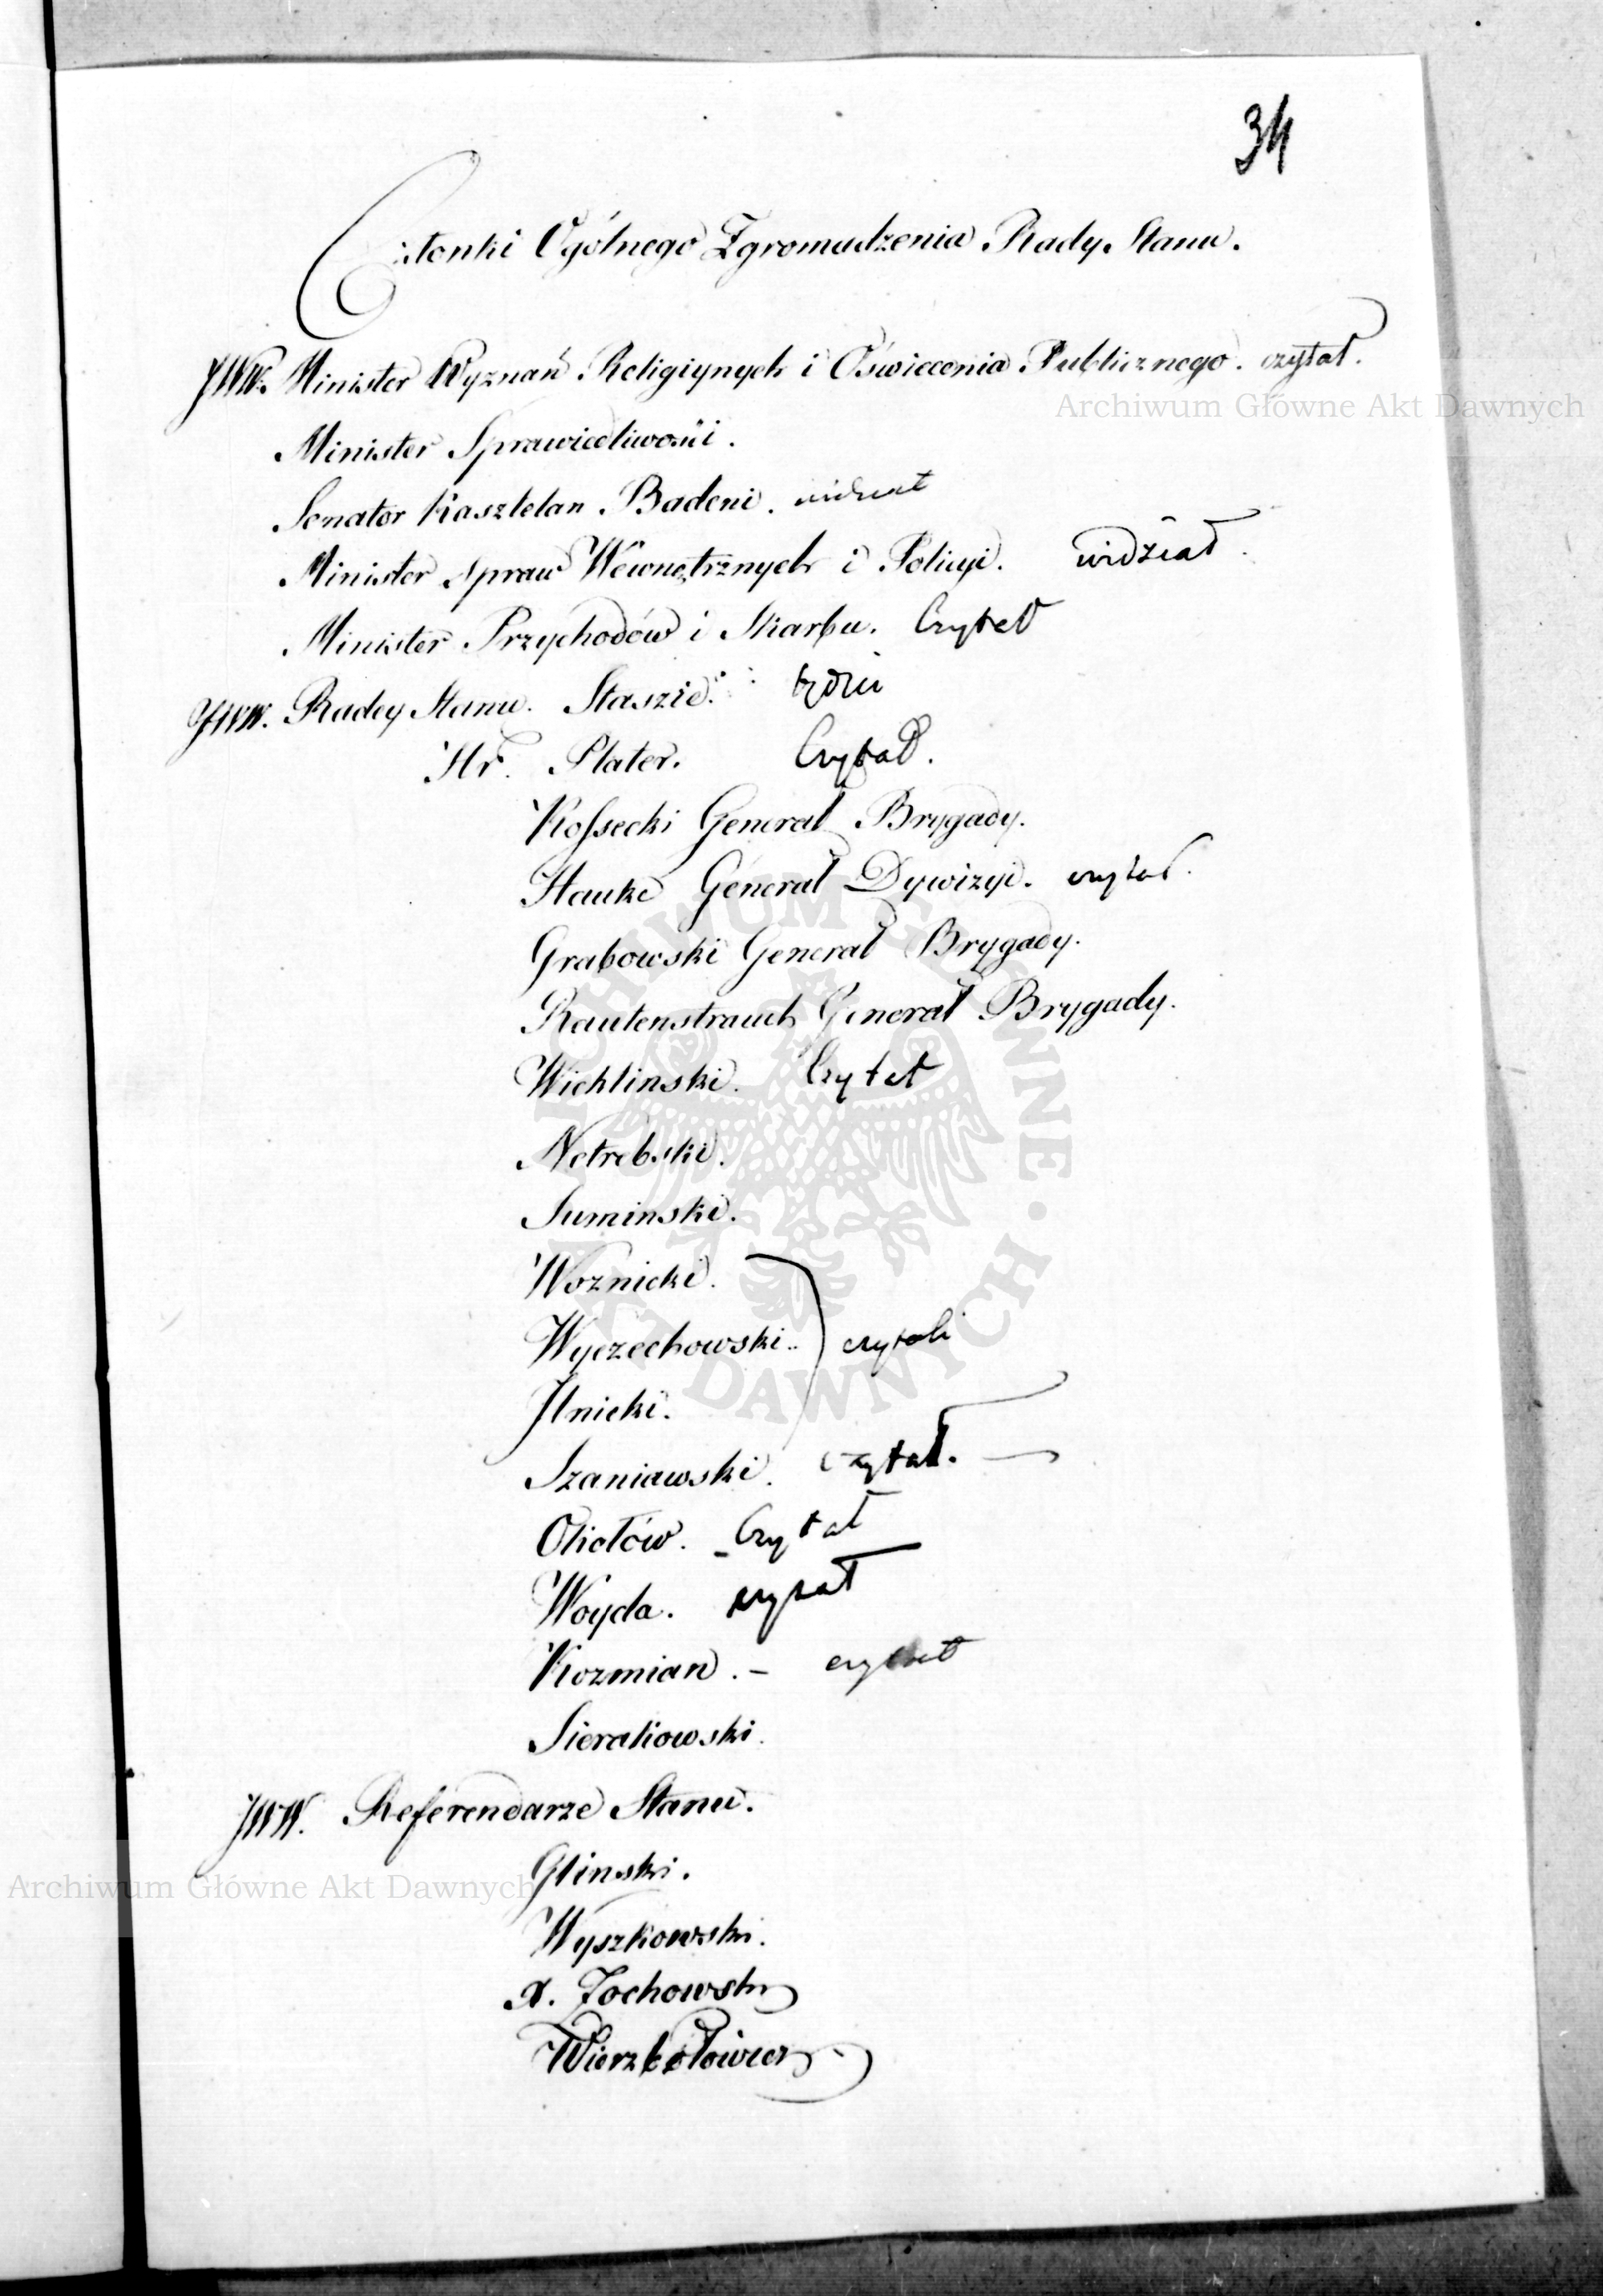 34
Członki Ogólnego Zgromadzenia Rady Stanu.
JWW. Minister Wyznań Religiynych i Oświecenia Publicznego. czytał.
Archiwum Główne Akt Dawnych
Minister Sprawiedliwości.
Senator Kasztelan Badeni. widział
Minister Spraw Wewnętrznych i Policyi. widział.
Minister Przychodów i Skarbu. Czytał
JWW. Radcy Stanu. Staszic.
Hr. Plater. Czytał.
Kossecki Generał Brygady.
Hauke Generał Dywizyi. czytał.
Grabowski Generał Brygady.
Rautenstrauch Generał Brygady.
Wichlinski. Czytał
Netrebski.
Suminski.
Woznicki.
Wyczechowski. czytali
Ilnicki.
Szaniawski. czytał.
Okołów. Czytał
Woyda. czytał
Kozmian. - czytał
Sierakowski.
JWW. Referendarze Stanu.
Glinski.
Archiwum Główne Akt Dawnych
Wyszkowski.
X. Zochowski
Wierzbołowicz
ARCHIWUM GŁÓWNE · AKT DAWNYCH ·